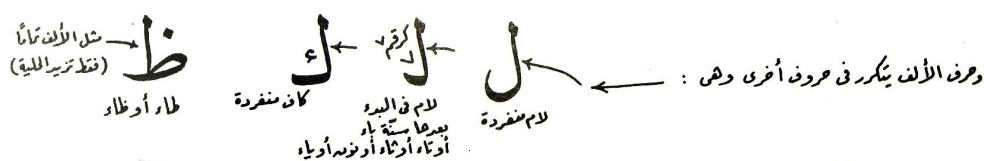 وحرف الألف يتكرر فى حروف أخرى وهى :
ل
لام منفردة
ل
كرقم ٧
لام فى البدء
بعدها سنّة باء
أوتاء أوثاء أونون أوياء
ك
كاف منفردة
ظ
مثل الألف تمامًا
(فقط تزيد الحلية)
طاء أو ظاء